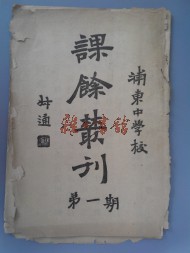 浦東中學校
課餘叢刊
第一期